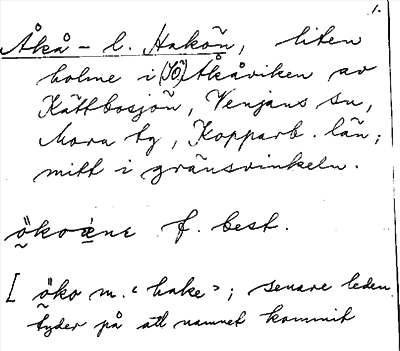 1.
Åkå – l. Hakön, liten
holme i (Yö) Åkåviken av
Kättbosjön, Venjans sn,
Mora tg, Kopparb. län;
mitt i gränsvinkeln.
ökoène f. best.
[ öko m. ‹ hake › ; senare leden
tyder på att namnet kommit